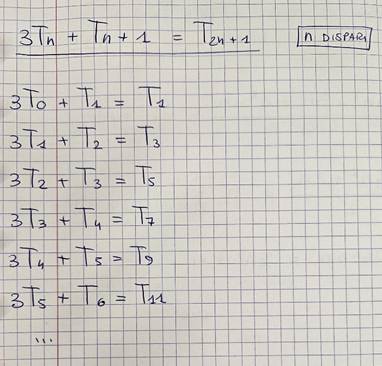 3Tn + Tn + 1 = T2n+1 n DISPARI
3T0 + T1 = T1
3T1 + T2 = T3
3T2 + T3 = T5
3T3 + T4 = T7
3T4 + T5 = T9
3T5 + T6 = T11
...